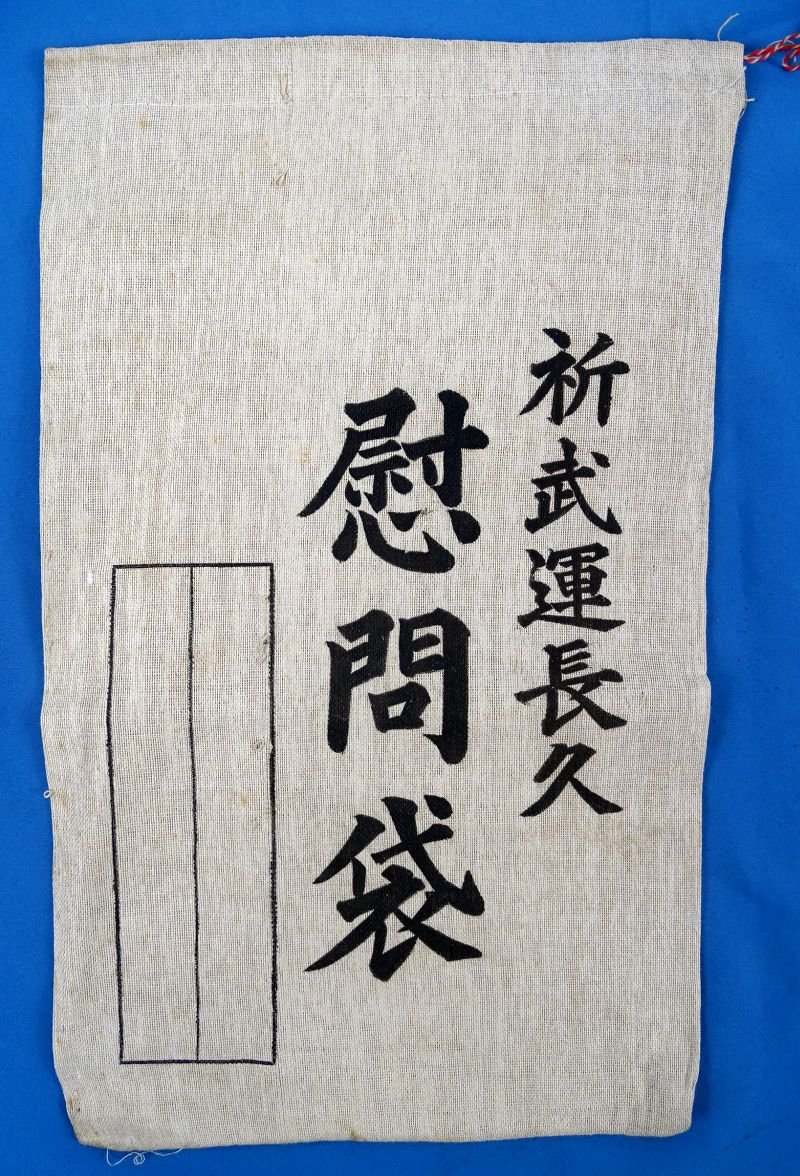 祈武運長久
慰問袋